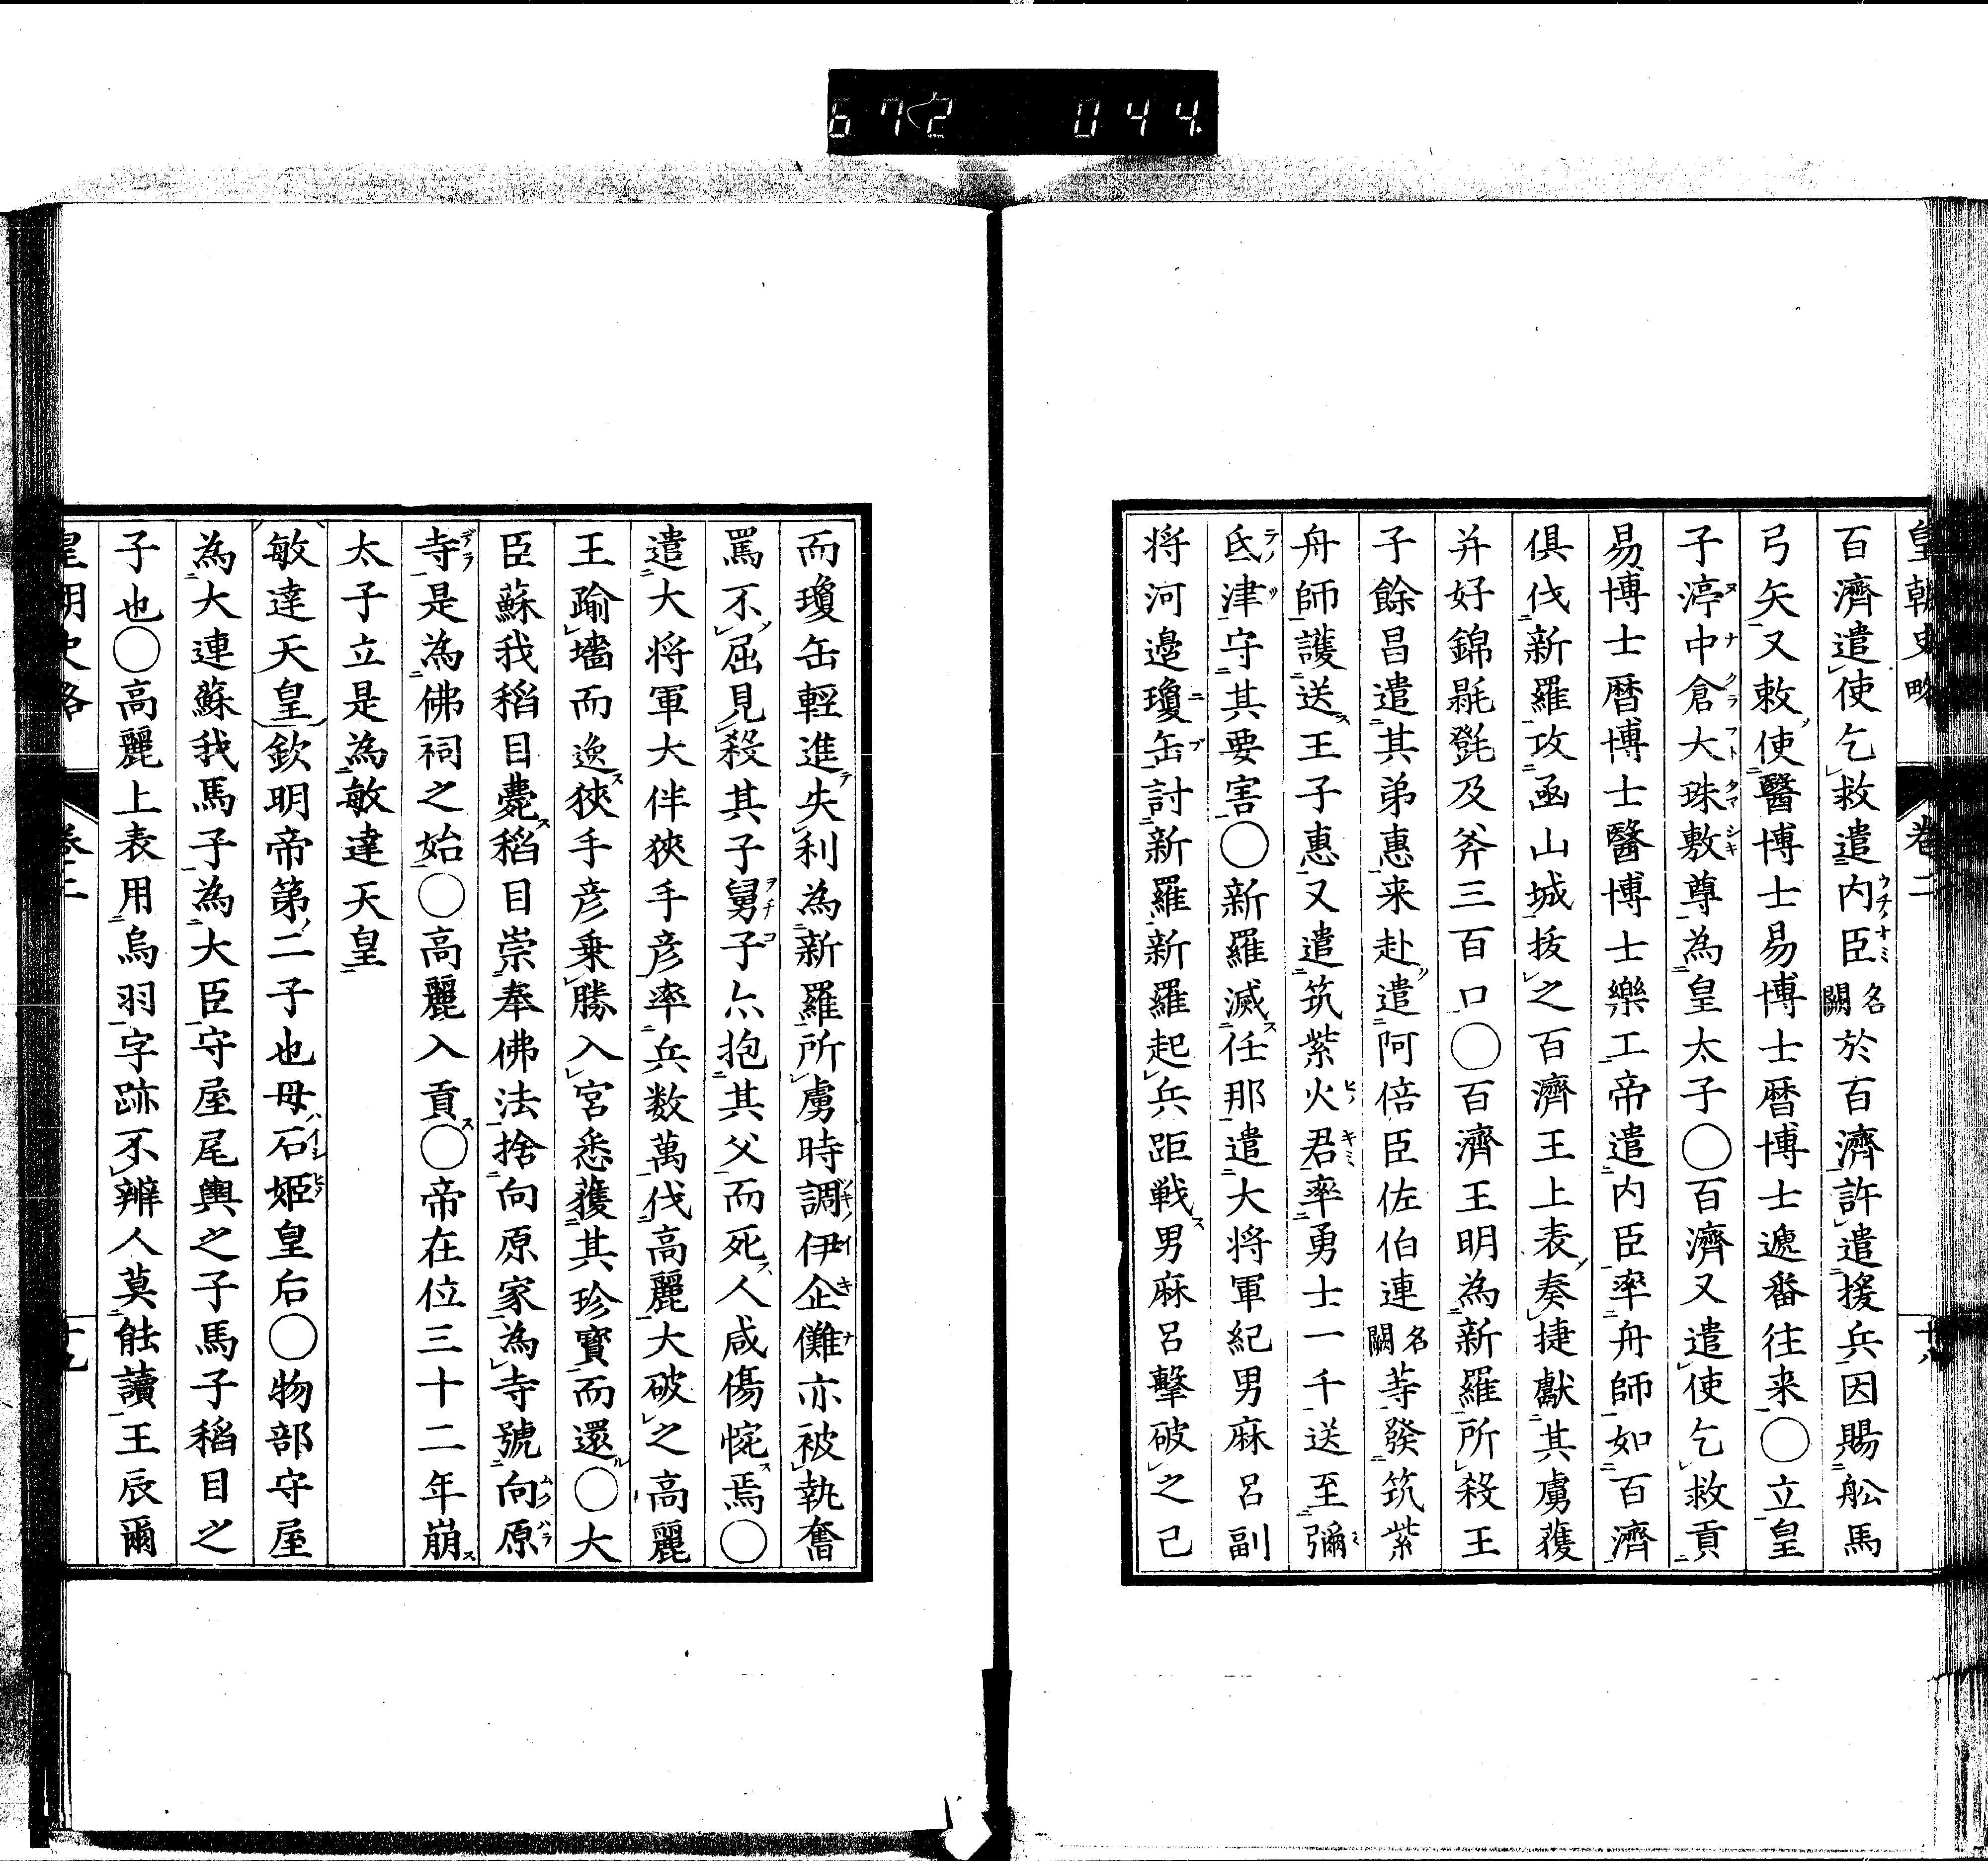 672 044
皇朝史略 卷二 十八
百濟遣使乞救遣内臣名闕於百濟許遣援兵因賜舩馬
弓矢又敕使醫博士易博士暦博士遞番往来○立皇
子渟中倉大珠敷尊為皇太子○百濟又遣使乞救貢
易博士暦博士醫博士樂工帝遣内臣率舟師如百濟
俱伐新羅攻凾山城拔之百濟王上表奏捷獻其虜獲
并好錦毾㲪及斧三百口○百濟王明為新羅所殺王
子餘昌遣其弟惠来赴遣阿倍臣佐伯連名闕等發筑紫
舟師護送王子惠又遣筑紫火君率勇士一千送至彌
氐津守其要害○新羅滅任那遣大将軍紀男麻呂副
将河邉瓊缶討新羅新羅起兵距戦男麻呂擊破之己
而瓊缶輕進失利為新羅所虜時調伊企儺亦被執奮
罵不屈見殺其子舅子亦抱其父而死人咸傷惋焉○
遣大将軍大伴狹手彦率兵数萬伐高麗大破之高麗
王踰墻而逸狹手彦乗勝入宮悉獲其珍寳而還○大
臣蘇我稻目薨稻目崇奉佛法捨向原家為寺號向原
寺是為佛祠之始○高麗入貢○帝在位三十二年崩
太子立是為敏達天皇
敏達天皇欽明帝第二子也母石姫皇后○物部守屋
為大連蘇我馬子為大臣守屋尾輿之子馬子稻目之
子也○高麗上表用烏羽字跡不辨人莫能讀王辰爾
皇朝史略 卷二 十九